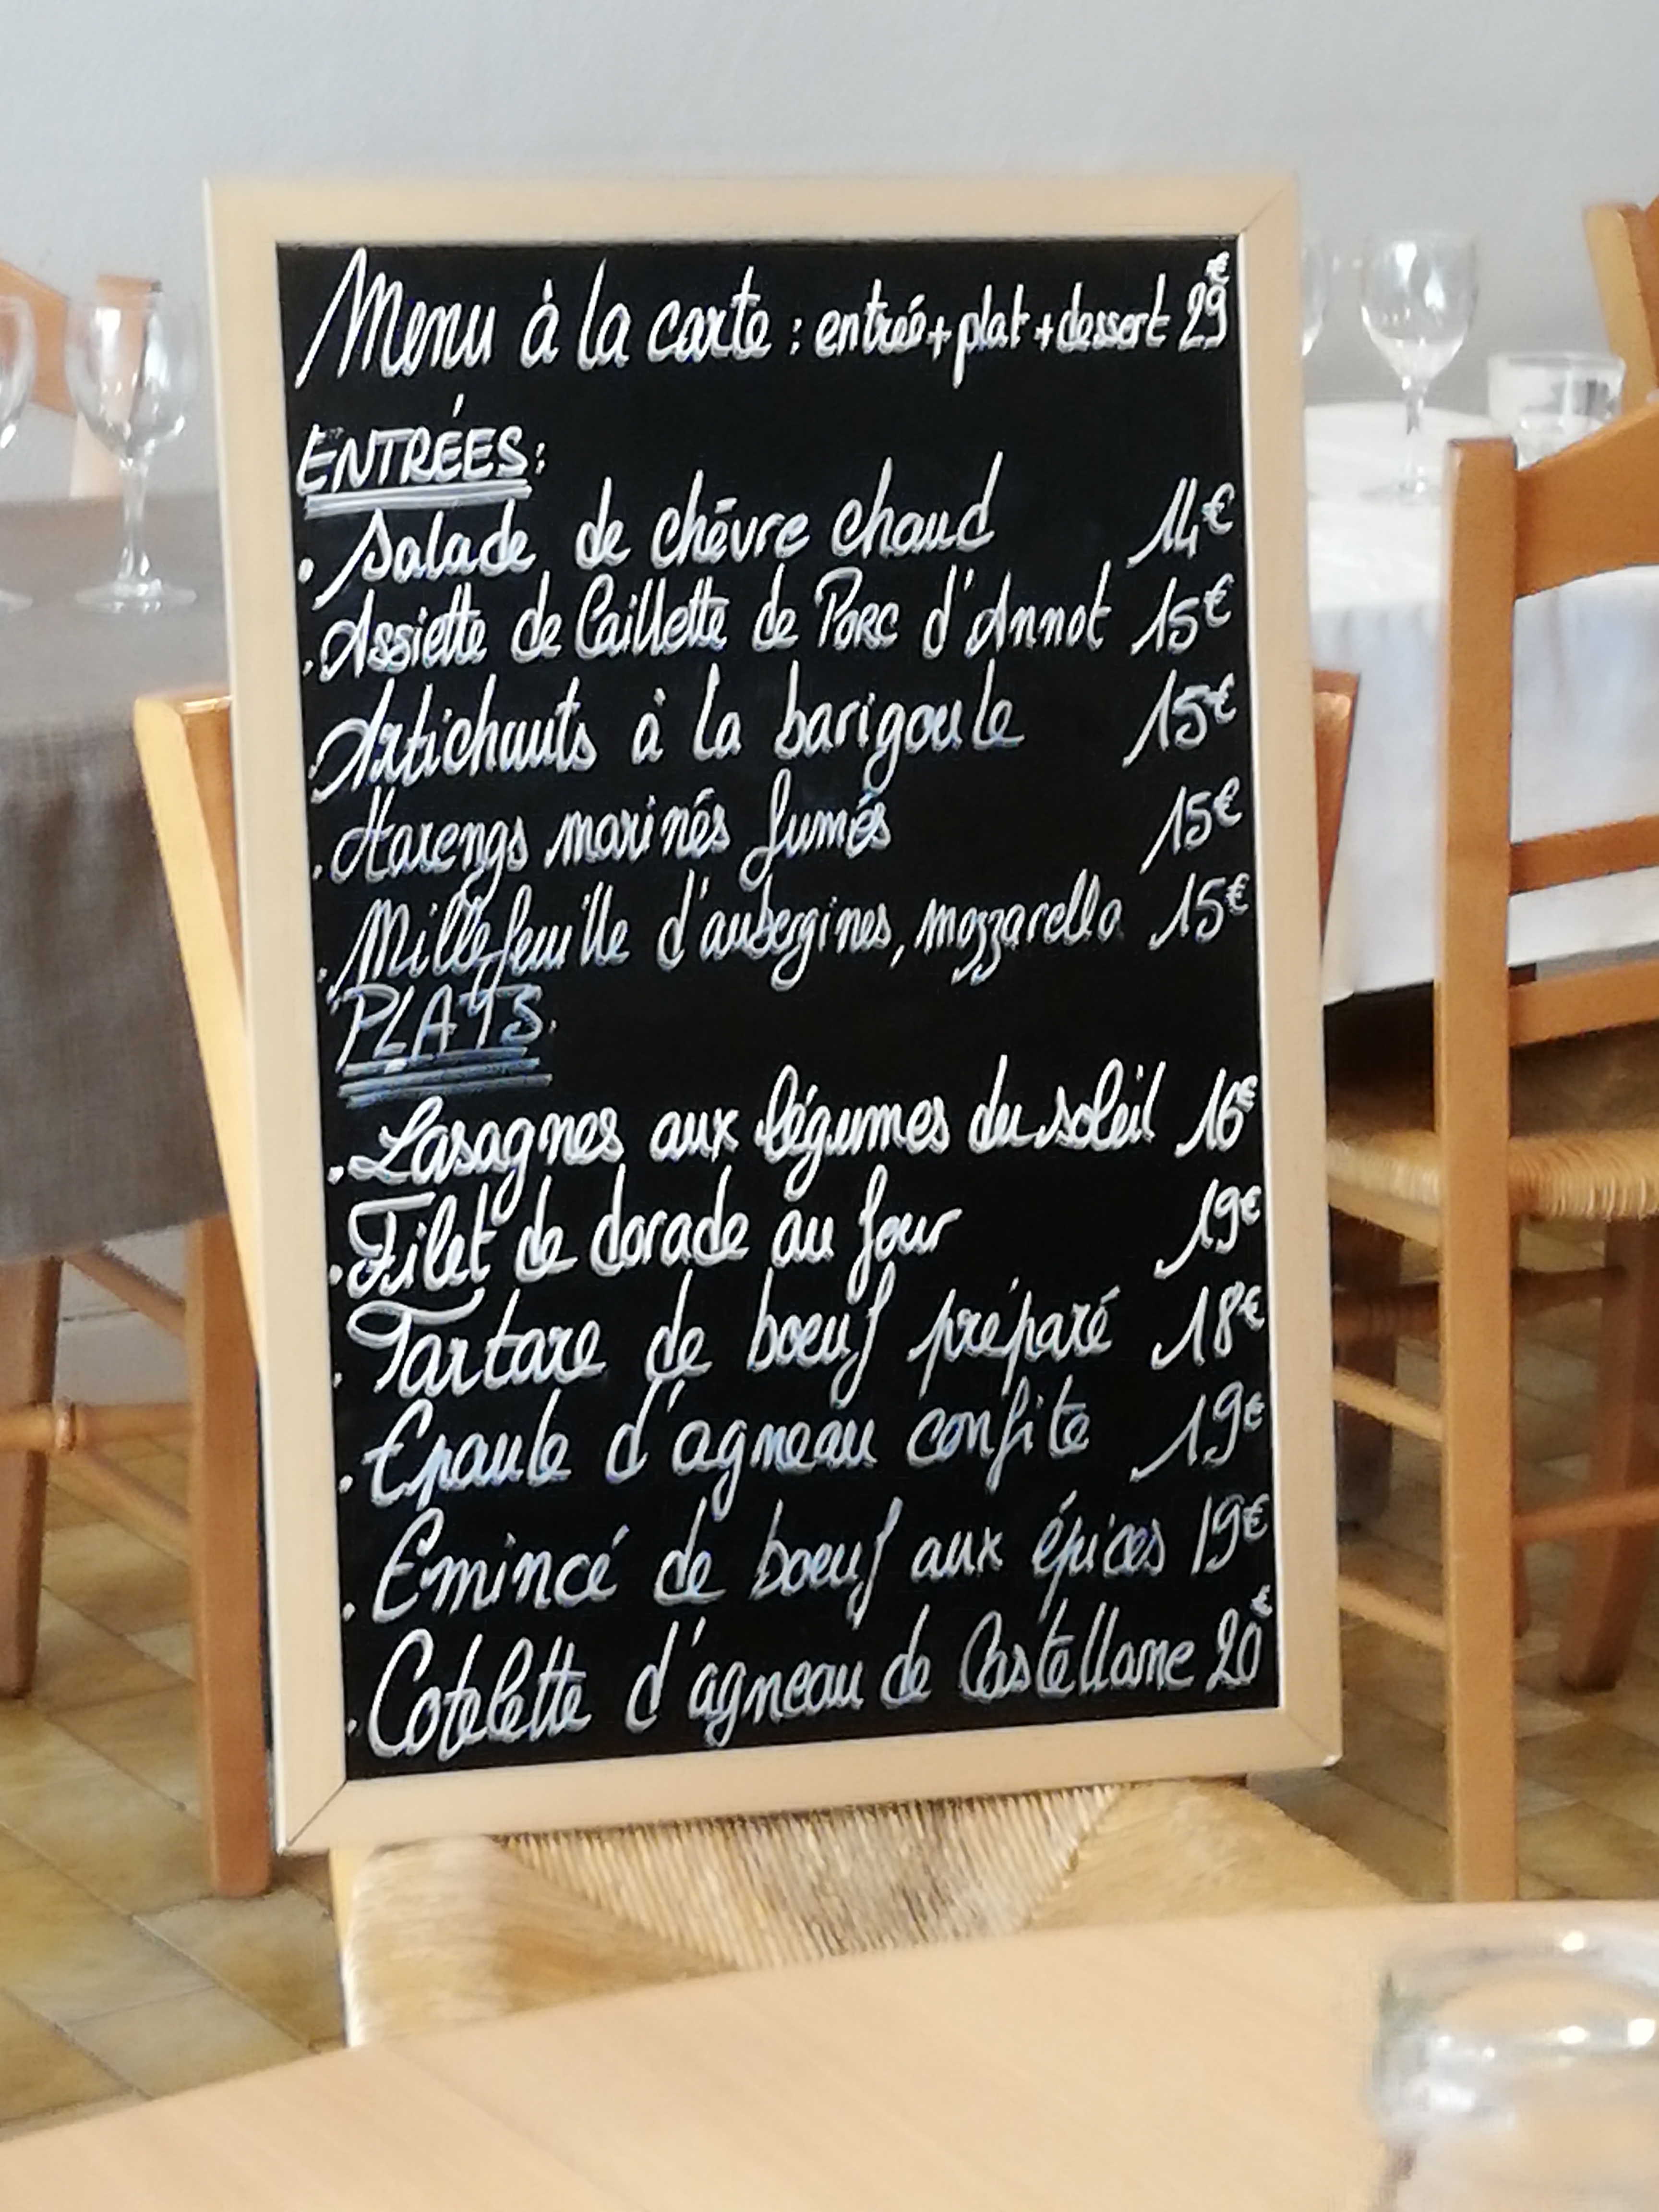 Menu à la carte : entrée + plat + dessert 29€
ENTRÉES:
. Salade de chèvre chaud 14€
. Assiette de Caillette de Porc d'Annot 15€
. Artichauts à la barigoule 15€
. Harengs marinés fumés 15€
. Millefeuille d'aubergines, mozzarella 15€
PLATS.
. Lasagnes aux légumes du soleil 16€
. Filet de dorade au four 19€
. Tartare de boeuf préparé 18€
. Epaule d'agneau confite 19€
. Emincé de boeuf aux épices 19€
. Cotelette d'agneau de Castellane 20€